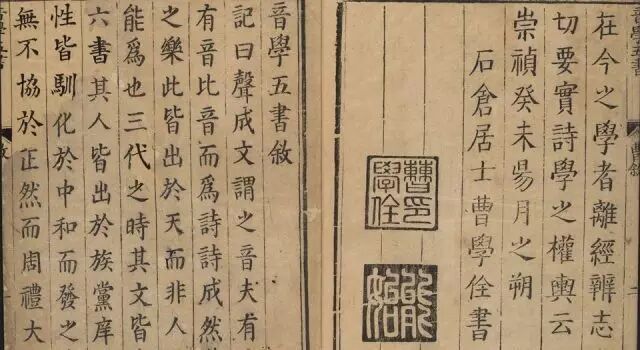 在今之學者離經辨志
切要實詩學之權輿云
崇禎癸未昜月之朔
石倉居士曹學佺書
曹印
學佺
音學五書敘
記曰聲成文謂之音夫有
有音比音而為詩詩成然
之樂此皆出於天而非人
能為也三代之時其文皆
六書其人皆出於族黨庠
性皆馴化於中和而發之
無不協於正然而周禮大